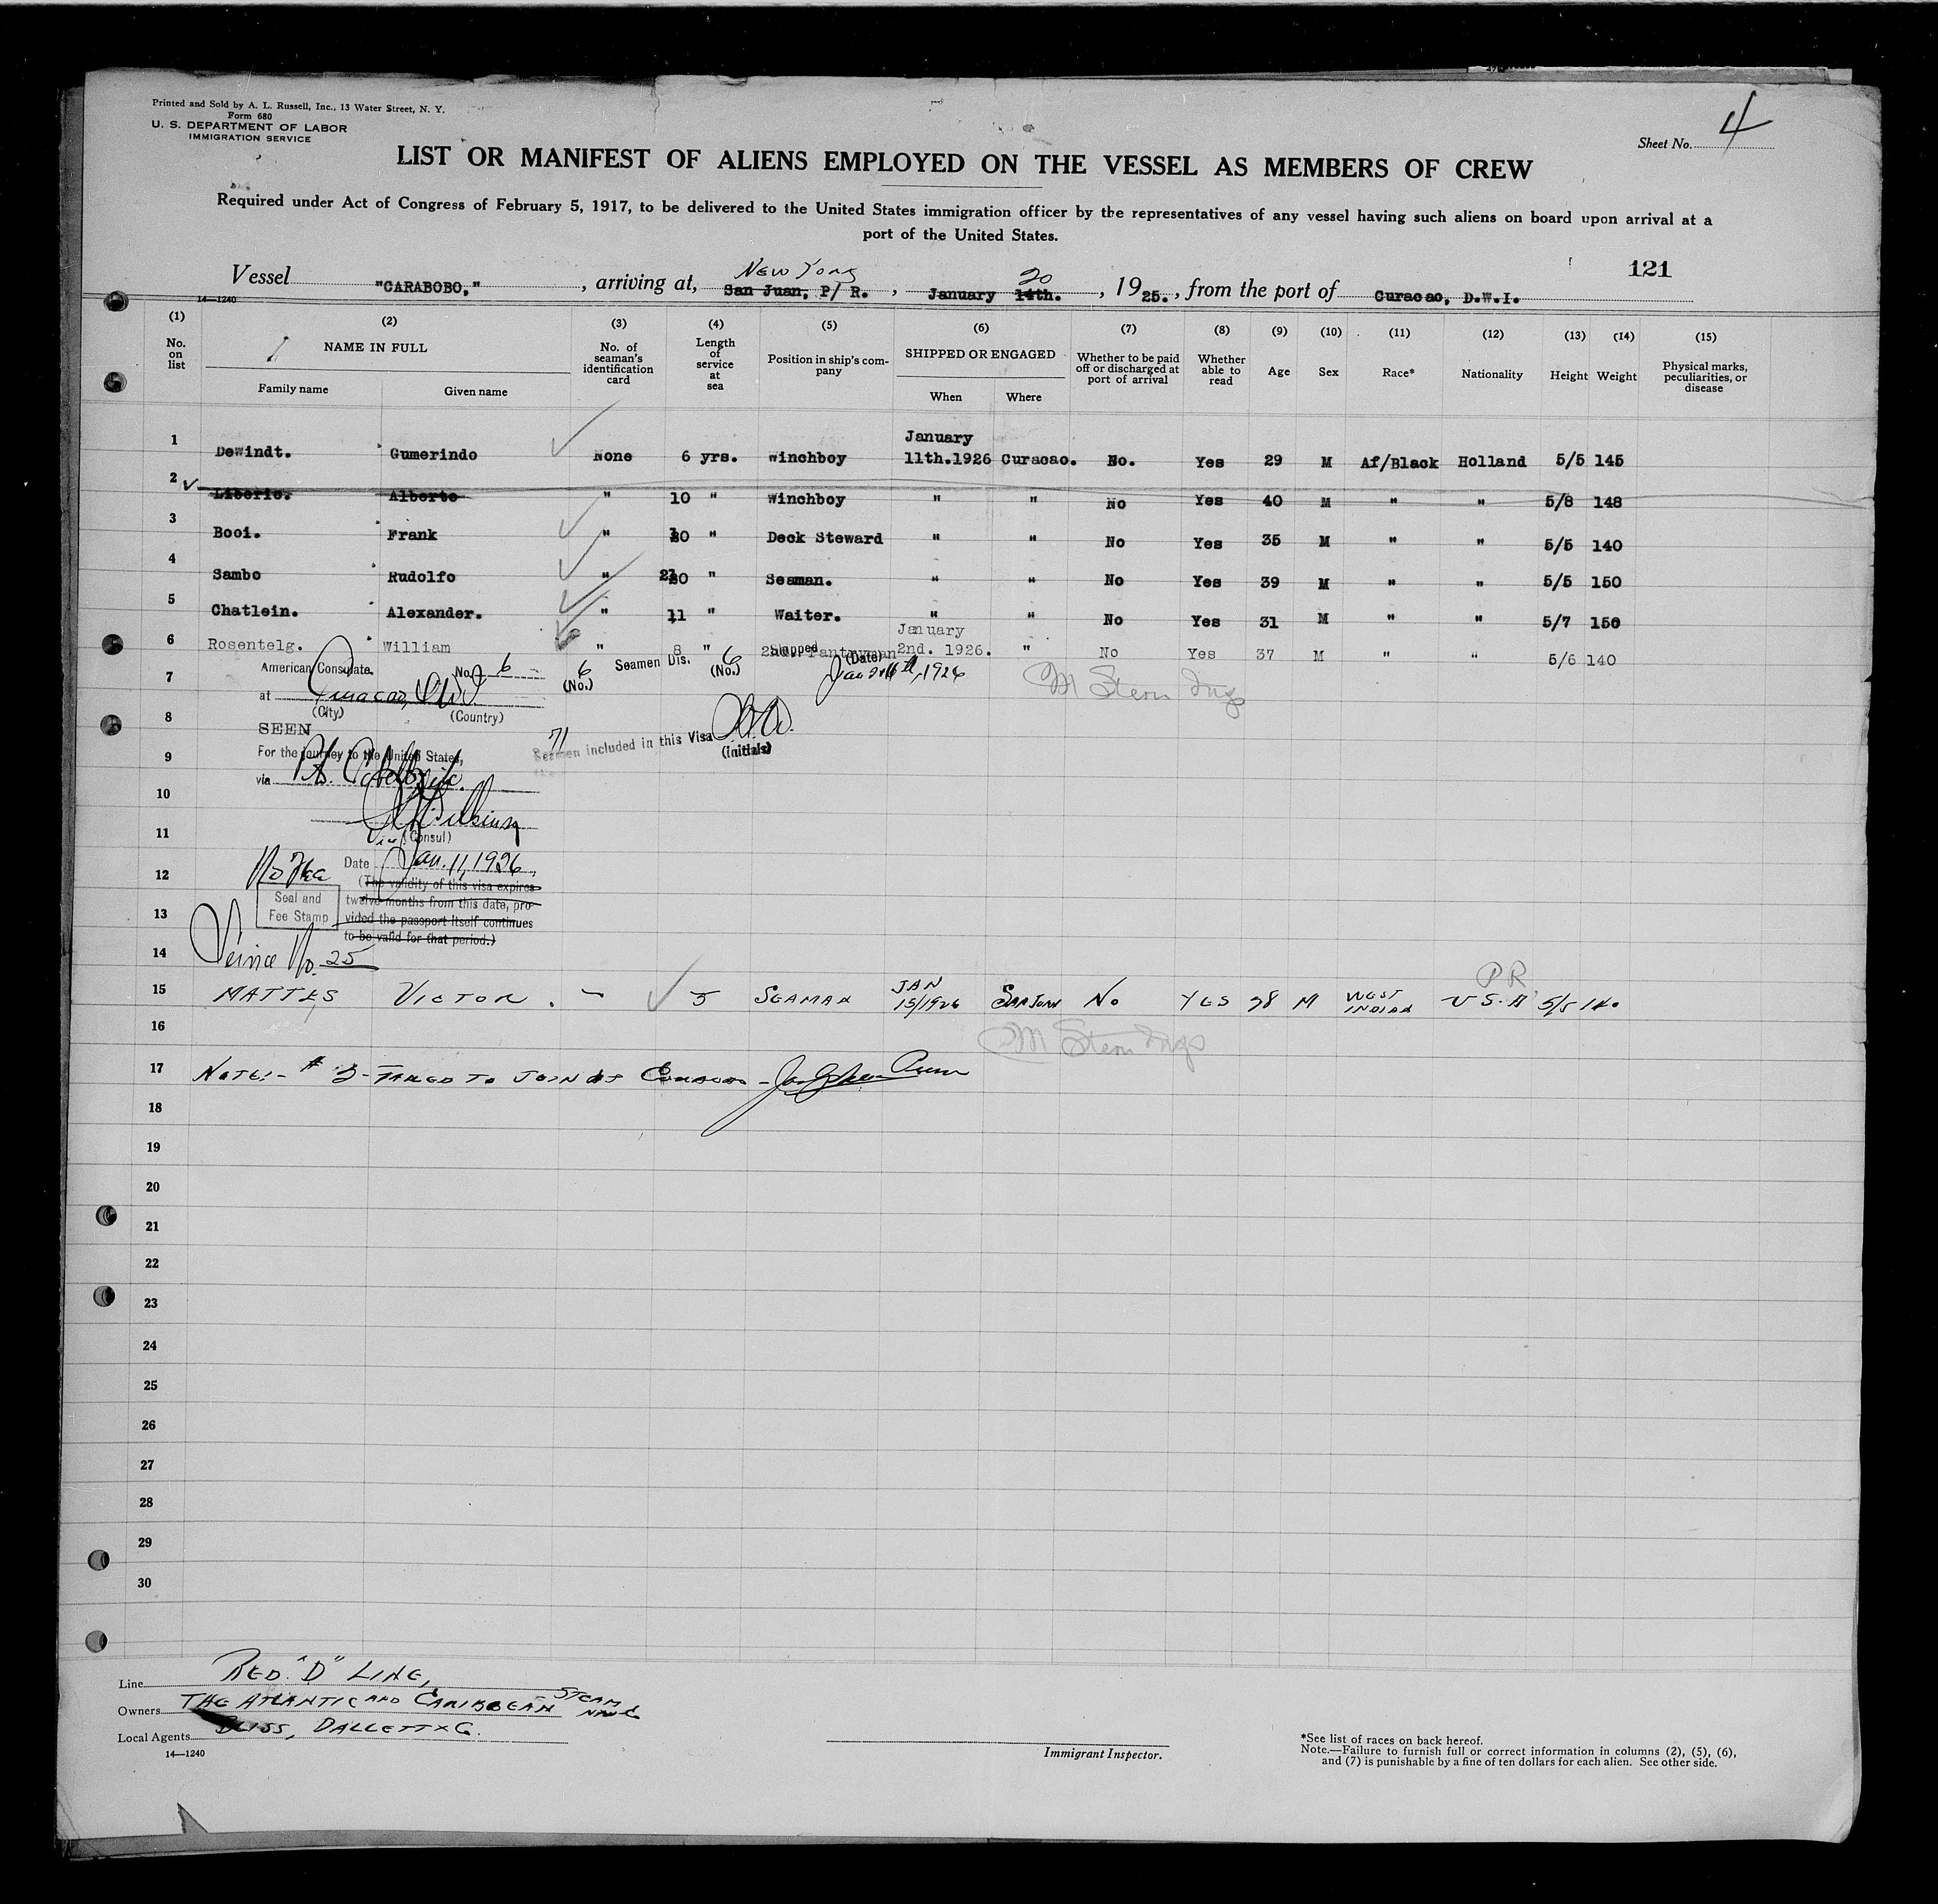 Printed and Sold by A. L. Russell, Inc., 13 Water Street, N. Y.
Form 680
U. S. DEPARTMENT OF LABOR
IMMIGRATION SERVICE
Sheet No. 4
LIST OR MANIFEST OF ALIENS EMPLOYED ON THE VESSEL AS MEMBERS OF CREW
Required under Act of Congress of February 5, 1917, to be delivered to the United States immigration officer by the representatives of any vessel having such aliens on board upon arrival at a
port of the United States.
121
New York 20
Vessel "CARABOBO," , arriving at, San Juan, P/ R. , January 14th. , 1925. , from the port of Curacao, D.W.I.
14—1240
(1) (2) (3) (4) (5) (6) (7) (8) (9) (10) (11) (12) (13) (14) (15)
No. on list NAME IN FULL No. of seaman's identification card Length of service at sea Position in ship's company SHIPPED OR ENGAGED Whether to be paid off or discharged at port of arrival Whether able to read Age Sex Race* Nationality Height Weight Physical marks, peculiarities, or disease
Family name Given name When Where
1 Dewindt. Gumerindo None 6 yrs. Winchboy January 11th.1926 Curacao. No. Yes 29 M Af/Black Holland 5/5 145
2 Liberio. Alberto " 10 " Winchboy " " No Yes 40 M " " 5/8 148
3 Booi. Frank " 10 " Deck Steward " " No Yes 35 M " " 5/5 140
4 Sambo Rudolfo " " Seaman. " " No Yes 39 M " " 5/5 150
5 Chatlein. Alexander. " 11 " Waiter. " " No Yes 31 M " " 5/7 150
6 Rosentelg. William " 8 " 2nd. Pantryman January 2nd. 1926. " No Yes 37 M " " 5/6 140
American Consulate. No. 6 6 (No.) Seamen Dis. 6 (No.) Shipped (Date) 1926
7
M Stern Insp
at Curacao, DWI
(City) (Country)
8
SEEN
71 Seamen included in this Visa
(initials)
9
For the journey to the United States,
via
10
11
(Consul)
12
No Fee
Date Jan. 11, 1926
(The validity of this visa expires
Seal and Fee Stamp
twelve months from this date, pro-
13
vided the passport itself continues
to be valid for that period.)
14
Service No. 25
PR
15 MATTES VICTOR. - 5 SEAMAN JAN 15/1926 SAN JUAN No YES 28 M WEST INDIAN U.S.A 5/5 140
16
M Stern Insp
17 NOTE:- # 2- FAILED TO JOIN AT CURACAO -
18
19
20
21
22
23
24
25
26
27
28
29
30
Line RED "D" LINE,
Owners THE ATLANTIC AND CARIBBEAN STEAM NAV C
Local Agents BLISS, DALLETT & Co.
14—1240
Immigrant Inspector.
*See list of races on back hereof.
Note.—Failure to furnish full or correct information in columns (2), (5), (6),
and (7) is punishable by a fine of ten dollars for each alien. See other side.